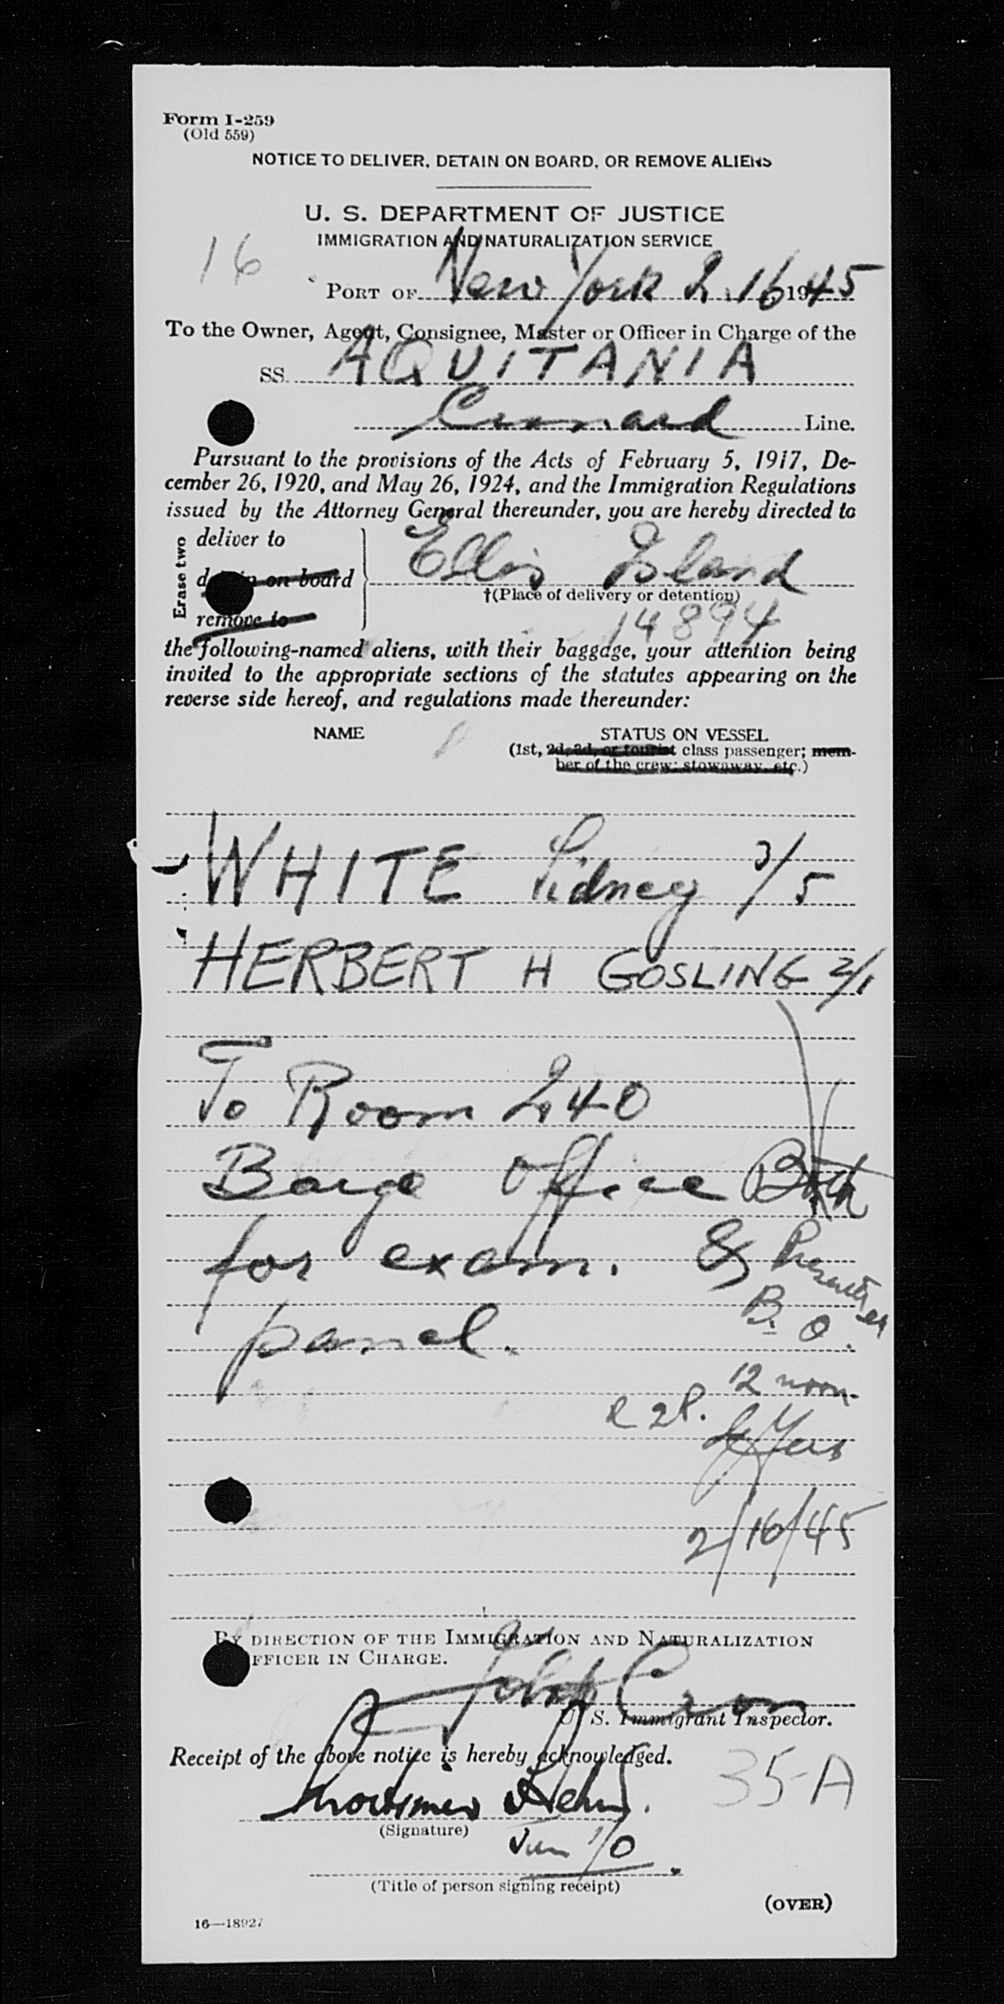 Form I-259
(Old 559)
NOTICE TO DELIVER, DETAIN ON BOARD, OR REMOVE ALIENS
U. S. DEPARTMENT OF JUSTICE
IMMIGRATION AND NATURALIZATION SERVICE
16
PORT OF New York 2.16 1945
To the Owner, Agent, Consignee, Master or Officer in Charge of the
SS. AQUITANIA
Cunard Line.
Pursuant to the provisions of the Acts of February 5, 1917, De-
cember 26, 1920, and May 26, 1924, and the Immigration Regulations
issued by the Attorney General thereunder, you are hereby directed to
Erase two
deliver to
detain on board
remove to
Ellis Island
†(Place of delivery or detention)
14894
the following-named aliens, with their baggage, your attention being
invited to the appropriate sections of the statutes appearing on the
reverse side hereof, and regulations made thereunder:
NAME
STATUS ON VESSEL
(1st, 2d, 3d, or tourist class passenger; mem-
ber of the crew; stowaway, etc.)
WHITE Sidney 3/5
HERBERT H GOSLING 2/1
To Room 240
Barge Office Both
for exam. &
panel.
B. O.
12 noon
2/16/45
BY DIRECTION OF THE IMMIGRATION AND NATURALIZATION
OFFICER IN CHARGE.
U. S. Immigrant Inspector.
Receipt of the above notice is hereby acknowledged.
35-A
(Signature)
(Title of person signing receipt)
(OVER)
16—18927